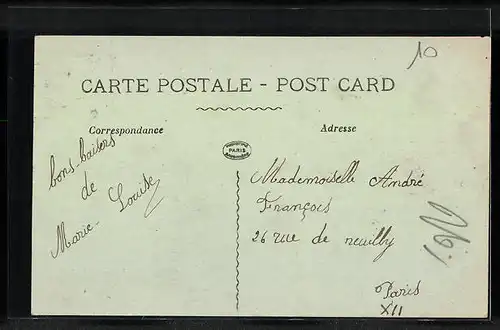 10
CARTE POSTALE - POST CARD
Correspondance
Adresse
PARIS
bons baisers
de
Marie-Louise
Mademoiselle André
François
26 rue de neuilly
Paris
XII